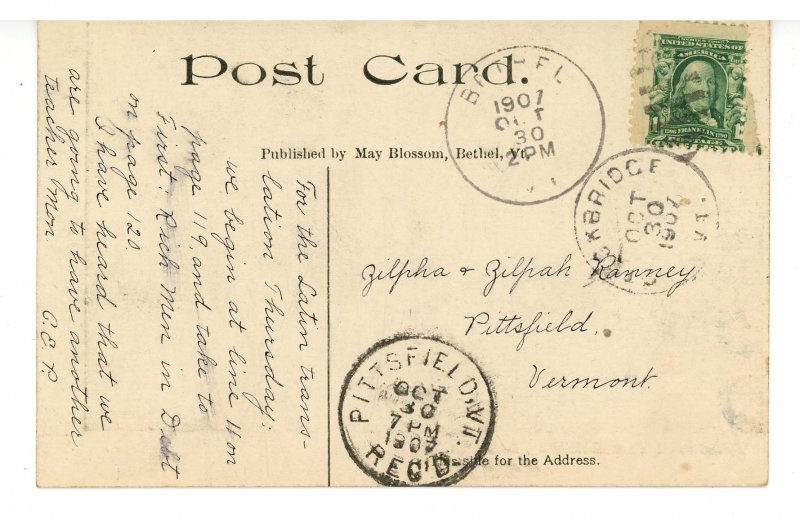 Post Card.
Published by May Blossom, Bethel, Vt.
For the Latin trans-
lation Thursday:
we begin at line 11 on
page 119, and take to
First: Rich Men in Debt
on page 120
I have heard that we
are going to have another
teacher Mon. C.E.P.
Zilpha & Zilpah Ranney,
Pittsfield,
Vermont.
side for the Address.
BETHEL
1907
OCT
30
2 PM
UNITED STATES OF
1706 FRANKLIN 1790
POSTAGE
CKBRIDGE
OCT
30
1907
PITTSFIELD, VT.
OCT
30
7 PM
1907
REC'D.